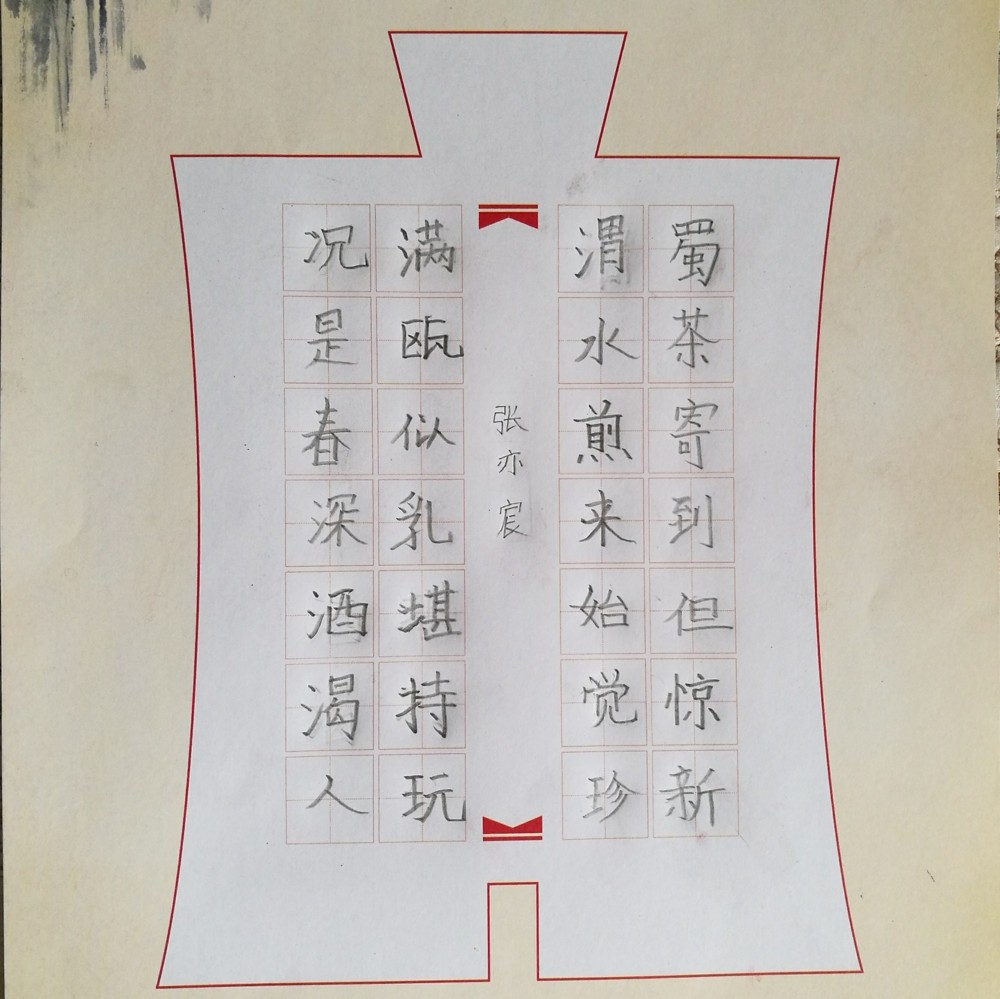 蜀茶寄到但惊新
渭水煎来始觉珍
张亦宸
满瓯似乳堪持玩
况是春深酒渴人